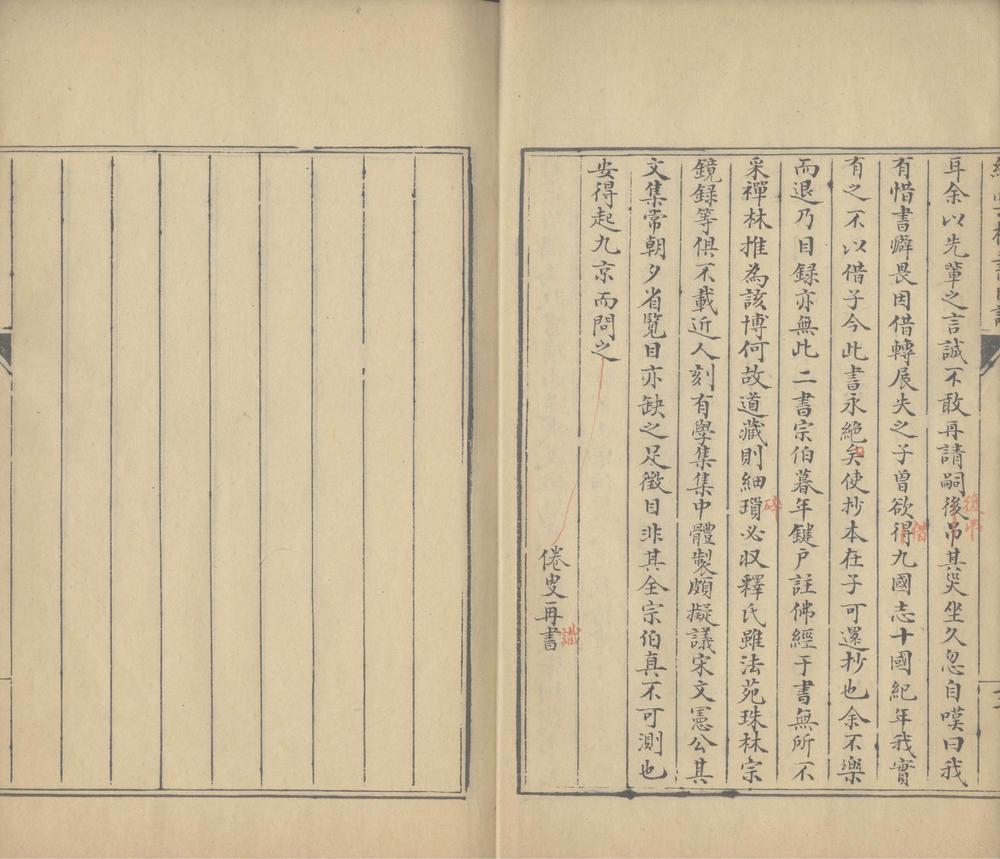 耳余以先輩之言誠不敢再請嗣後吊其災坐久忽自嘆曰我
後弔
有惜書癖畏因借轉展失之子曾欲得九國志十國紀年我實
借
有之不以借子今此書永絶矣使抄本在子可還抄也余不樂
而退乃目録亦無此二書宗伯暮年鍵户註佛經于書無所不
采禪林推為該博何故道藏則細瑣必収釋氏雖法苑珠林宗
碎
鏡録等俱不載近人刻有學集集中體製頗擬議宋文憲公其
文集常朝夕省覽目亦缺之足徵目非其全宗伯真不可測也
安得起九京而問之
倦叟再書
識